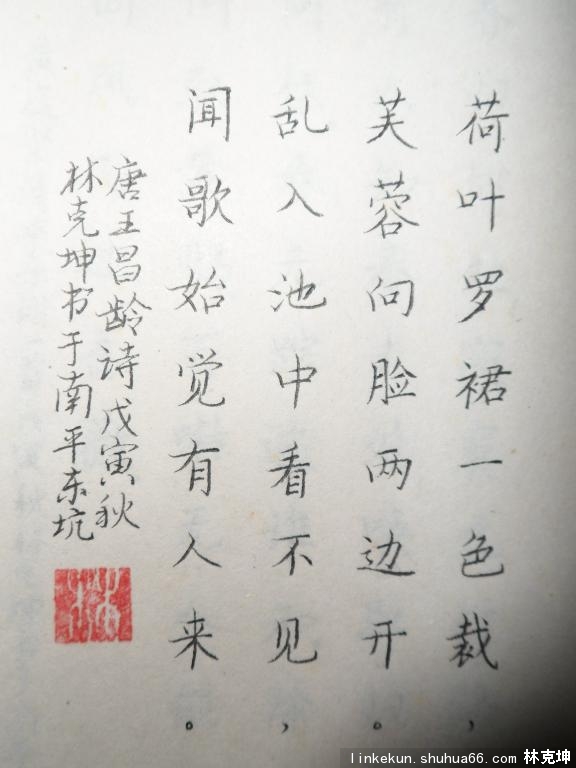 荷叶罗裙一色裁，
芙蓉向脸两边开。
乱入池中看不见，
闻歌始觉有人来。
唐王昌龄诗戊寅秋
林克坤书于南平东坑
linkekun.shuhua66.com 林克坤